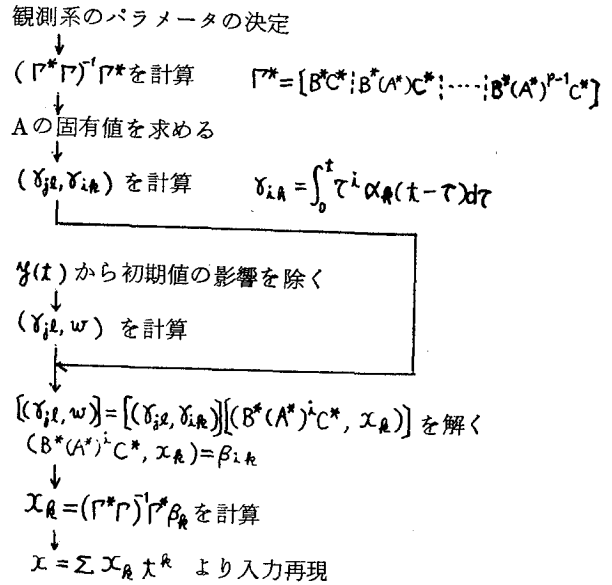 観測系のパラメータの決定
↓
(Γ*Γ)⁻¹Γ*を計算 Γ*=[B*C*⋮B*(A*)C*⋮-----⋮B*(A*)ᵖ⁻¹C*]
↓
Aの固有値を求める
↓
(γjℓ,γik) を計算 γik=∫₀ᵗτⁱαk(t-τ)dτ
y(t)から初期値の影響を除く
↓
(γjℓ,w) を計算
↓
[(γjℓ,w)]=[(γjℓ,γik)][(B*(A*)ⁱC*, xk)] を解く
(B*(A*)ⁱC*, xk)=βik
↓
xk=(Γ*Γ)⁻¹Γ*βkを計算
↓
x=Σxk tᵏ より入力再現